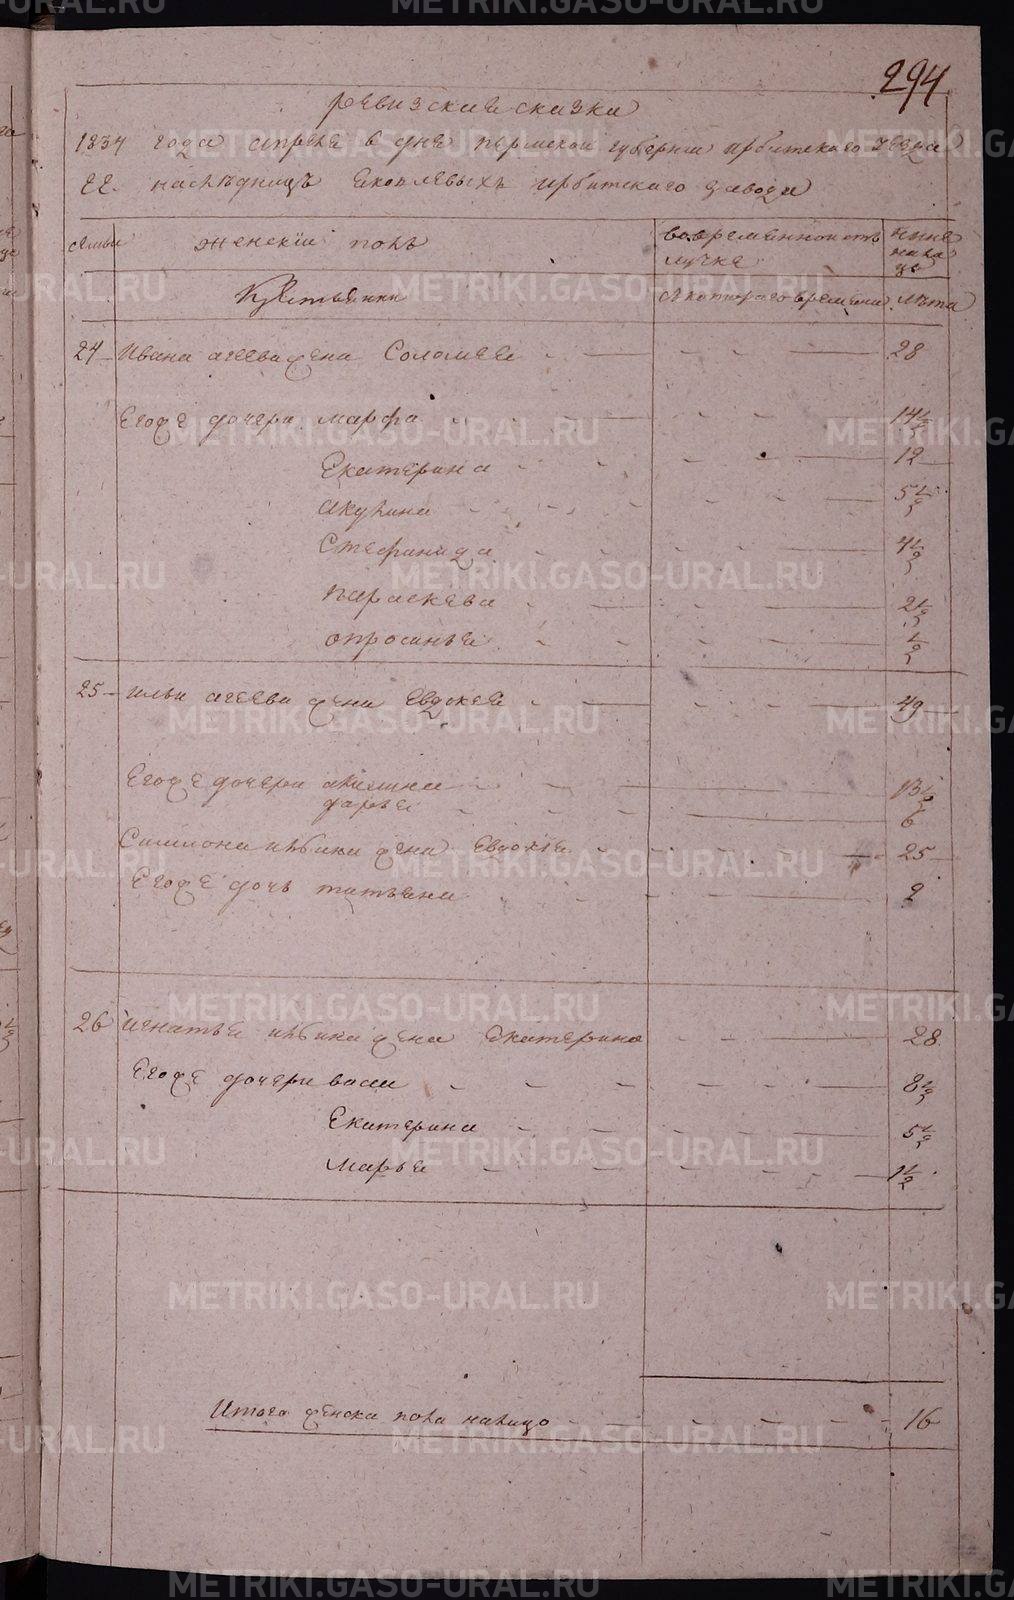 294
ревизские сказки
1834 года апреля в дне пермской губернии ирбитского уезда
ГГ. наследницъ яковлевыхъ ирбитского завода
семьи женский полъ во временной отлучке ныне на лицо
крестьянки с которого времени лѣта
24 Ивана агеева жена Соломея - - - - 28
Егоже дочери марфа - - - - 14½
Екатерина - - - - 12
акулина - - - - 5½
Стефанида - - - - 4½
параскева - - - - 2½
опросинья - - - - ½
25 ильи агеева жена Евдокея - - - - 49
Егоже дочери акилина - - - - 13½
дарья - - - - 6
жена Евдокея - - - - 25
Егоже дочь татьяна - - - - 2
26 игнатья жена Екатерина - - - - 28
Егоже дочери васи - - - - 8½
Екатерина - - - - 5½
марья - - - - 1½
Итого женска пола налицо - - - - 16
METRIKI.GASO-URAL.RU